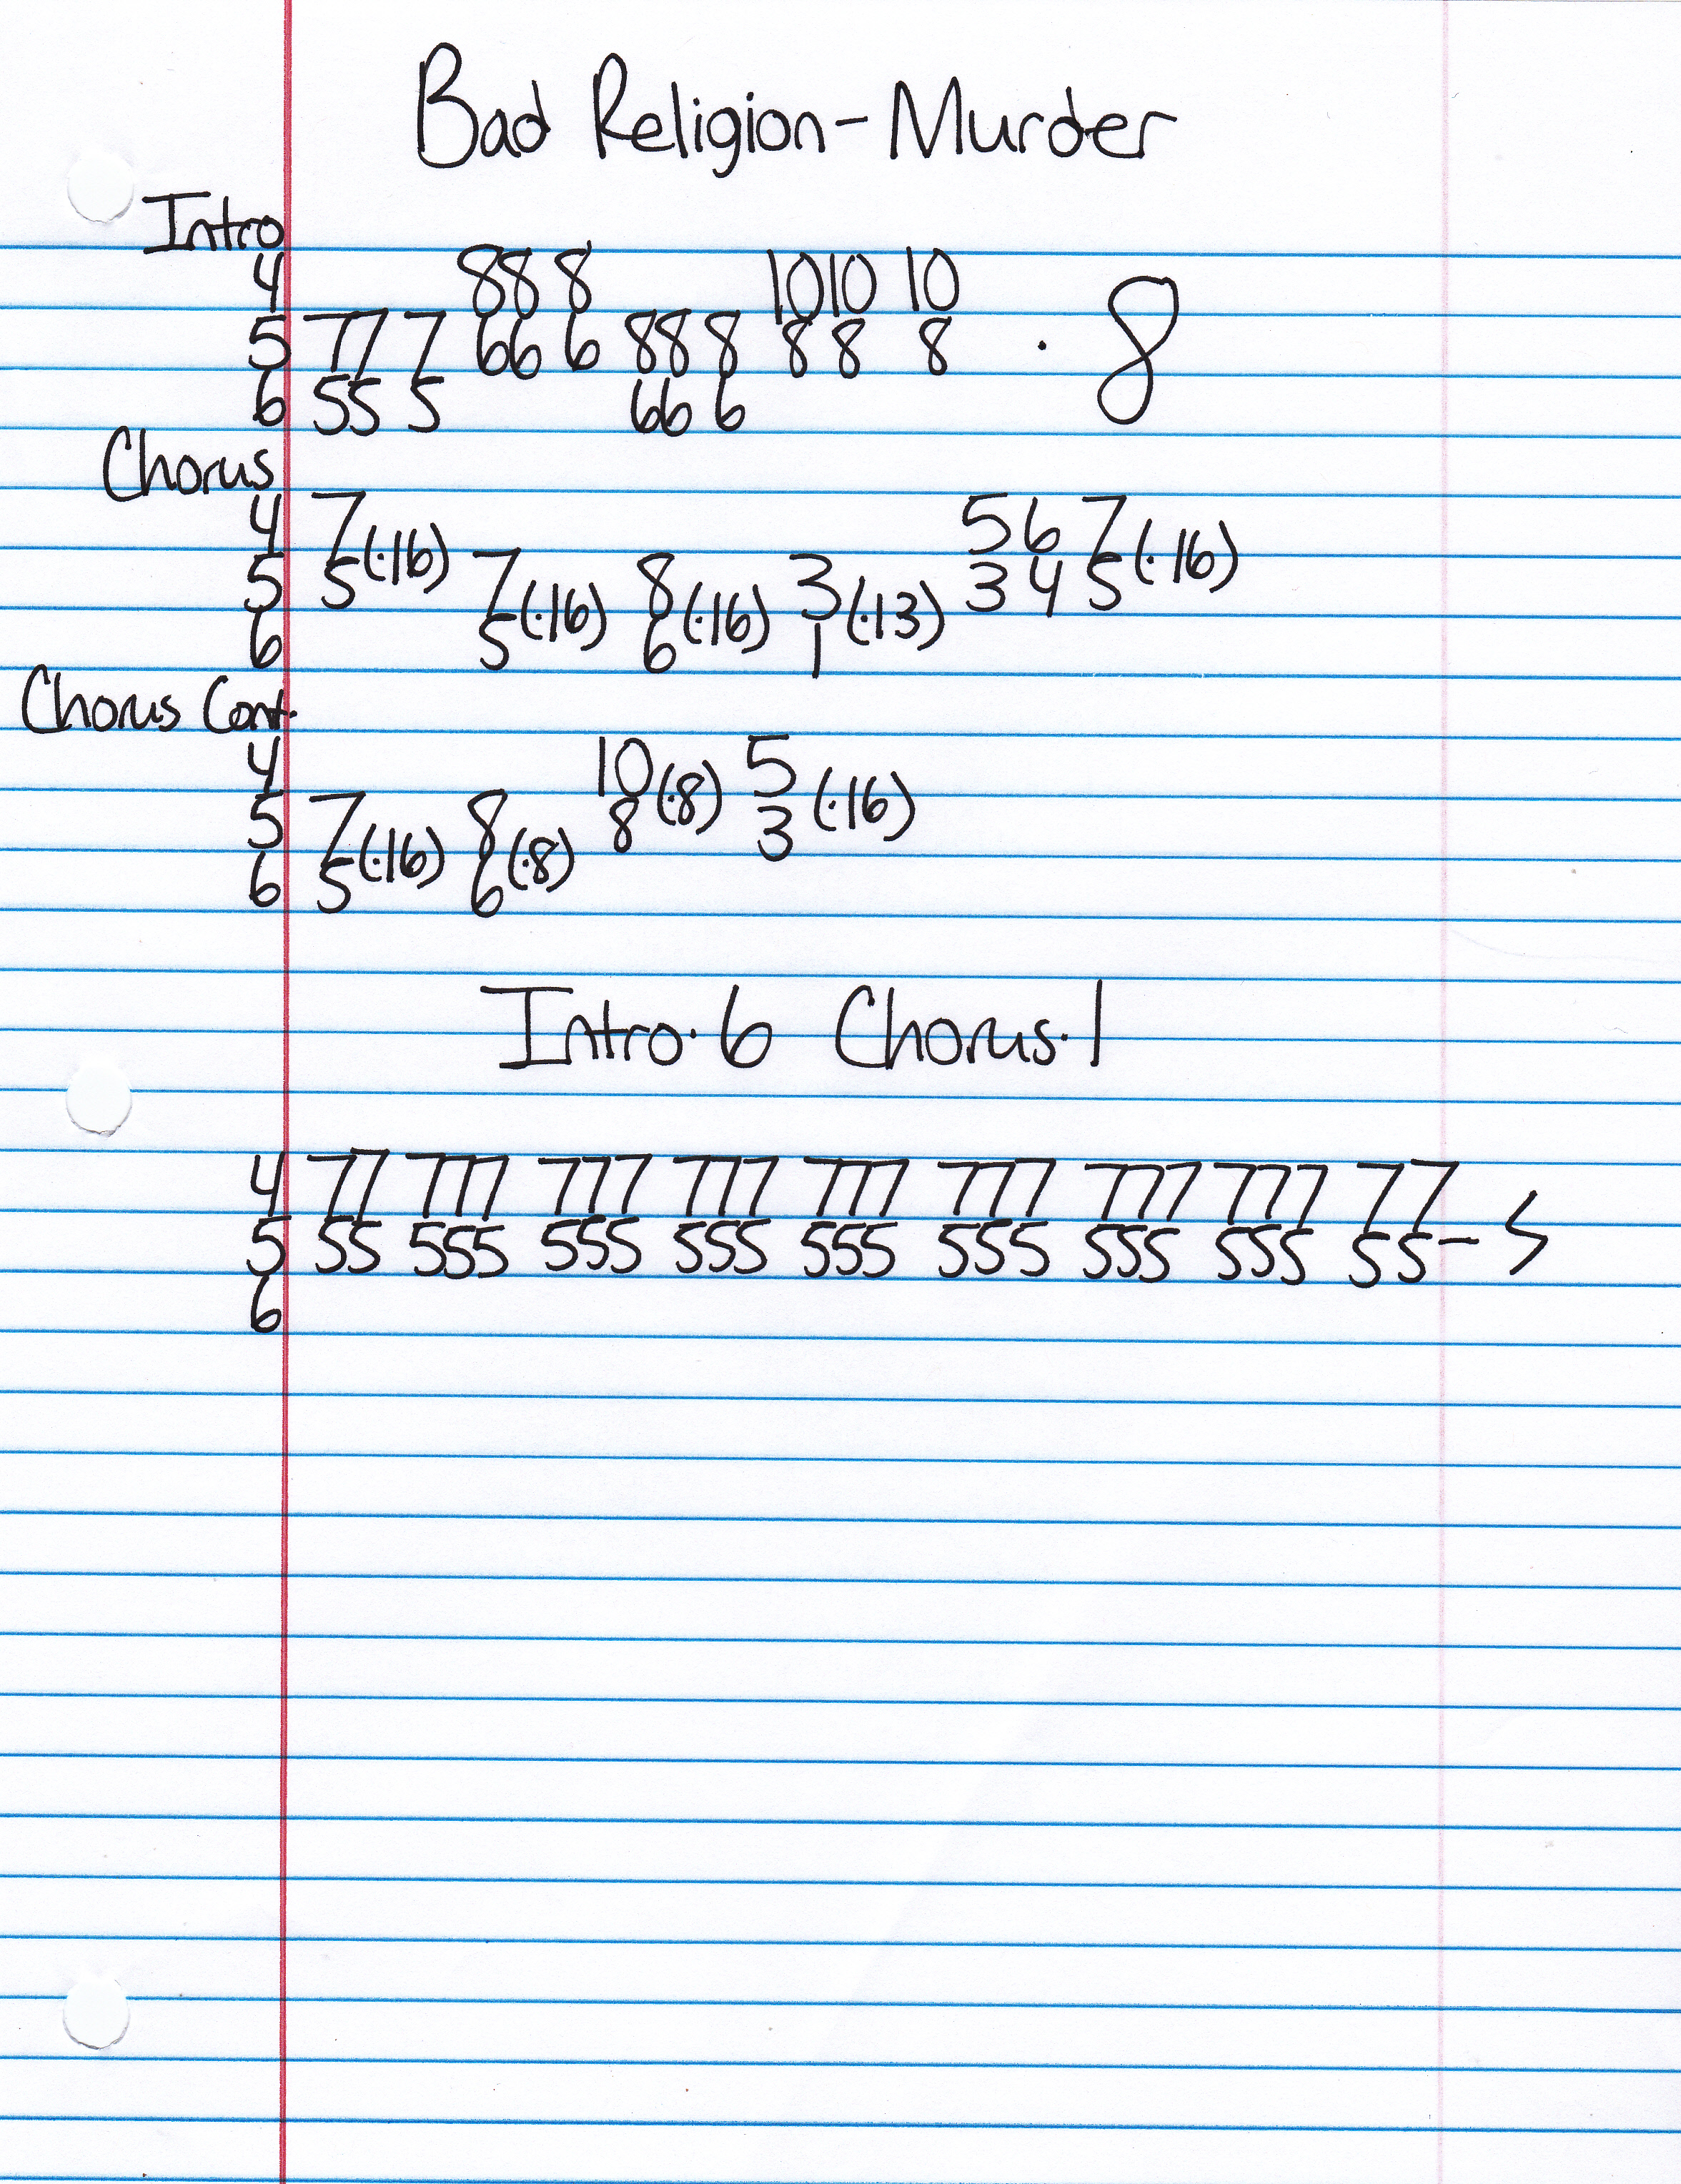 Bad Religion - Murder
Intro
4 88 8 1010 10
5 77 7 66 6 88 8 8 8 8 · 8
6 55 5 66 6
Chorus
4 7 5 6 7
5 5 (·16) 7 8 3 3 4 5 (·16)
6 5 (·16) 6 (·16) 1 (·13)
Chorus Cont.
4 10 5
5 7 8 8 (·8) 3 (·16)
6 5 (·16) 6 (·8)
Intro·6 Chorus·1
4 77 777 777 777 777 777 777 777 77
5 55 555 555 555 555 555 555 555 55 -
6